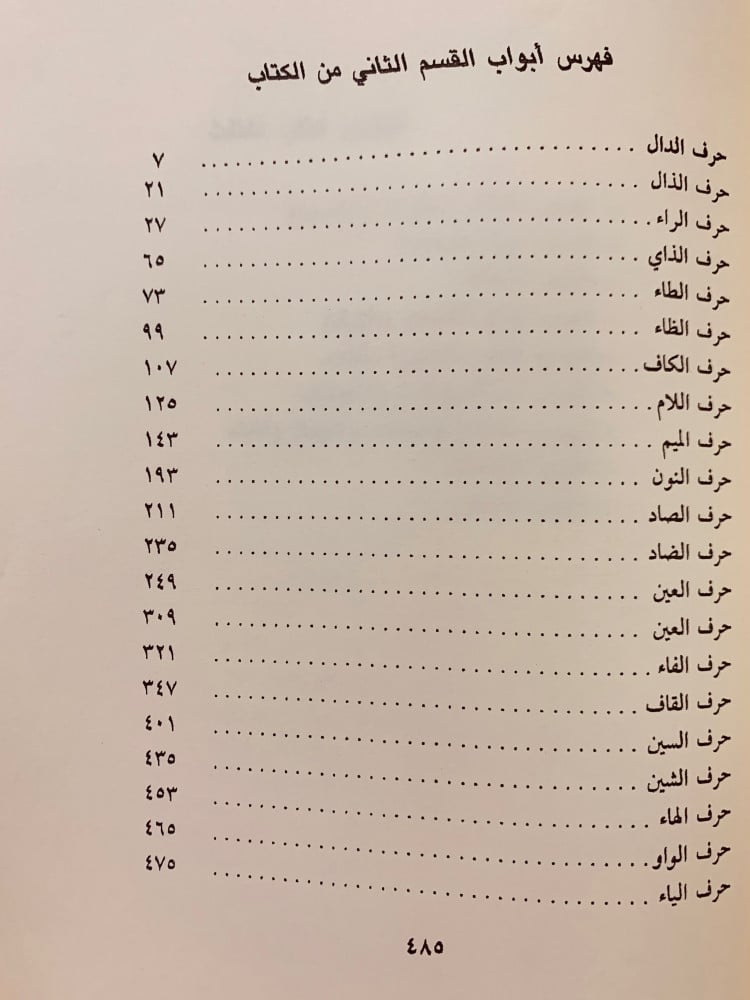 فهرس أبواب القسم الثاني من الكتاب
حرف الدال .................................... ٧
حرف الذال .................................... ٢١
حرف الراء .................................... ٢٧
حرف الذاي .................................... ٦٥
حرف الطاء .................................... ٧٣
حرف الظاء .................................... ٩٩
حرف الكاف .................................... ١٠٧
حرف اللام .................................... ١٢٥
حرف الميم .................................... ١٤٣
حرف النون .................................... ١٩٣
حرف الصاد .................................... ٢١١
حرف الضاد .................................... ٢٣٥
حرف العين .................................... ٢٤٩
حرف العين .................................... ٣٠٩
حرف الفاء .................................... ٣٢١
حرف القاف .................................... ٣٤٧
حرف السين .................................... ٤٠١
حرف الشين .................................... ٤٣٥
حرف الهاء .................................... ٤٥٣
حرف الواو .................................... ٤٦٥
حرف الياء .................................... ٤٧٥
٤٨٥